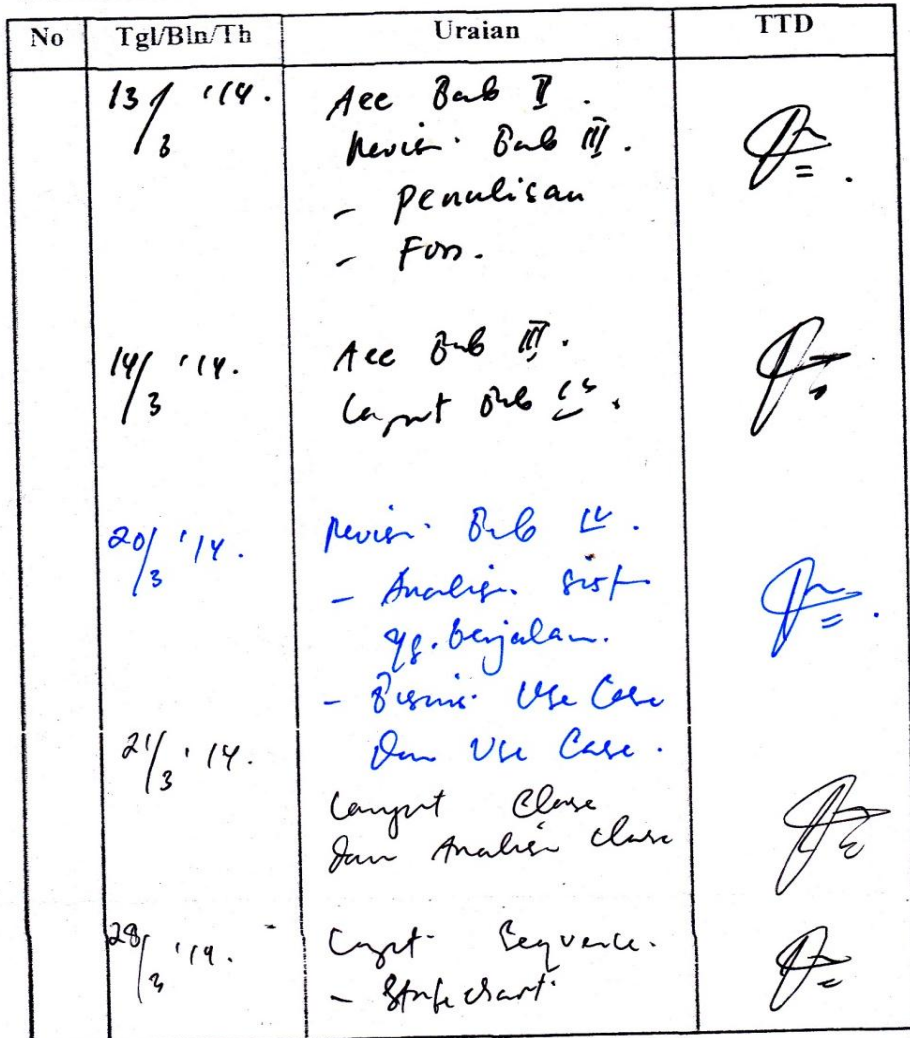 No Tgl/Bln/Th Uraian TTD
13/3 '14. Acc Bab II.
Revisi Bab III.
- Penulisan
- Fon.
14/3 '14. Acc Bab III.
Lanjut Bab IV.
20/3 '14. Revisi Bab IV.
- Analisa Sist
yg. berjalan.
- Bisnis Use Case
Dan Use Case.
21/3 '14.
Lanjut Class
dan Analisa class
28/3 '14. Lanjut Sequence.
- Statechart.